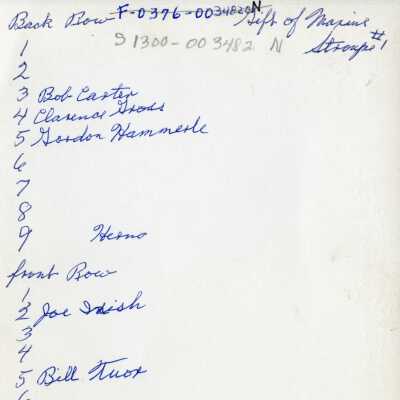 Back Row F-0376-003482N Gift of Maxine
S1300-003482 N Stroupe #1
1
2
3 Bob Carter
4 Clarence Gross
5 Gordon Hammerle
6
7
8
9 Herno
front Row
1
2 Joe Irish
3
4
5 Bill Knox
6